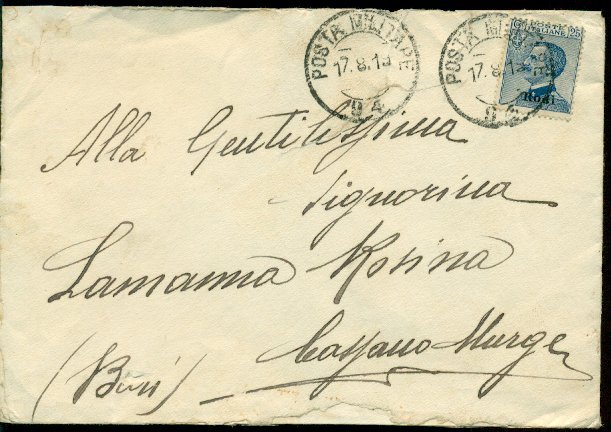 POSTA MILITARE
17.8.19
94
POSTA MILITARE
17.8.1
94
25
Rodi
Alla Gentilissima
Signorina
Lamanna Rosina
Cassano Murge
(Bari)